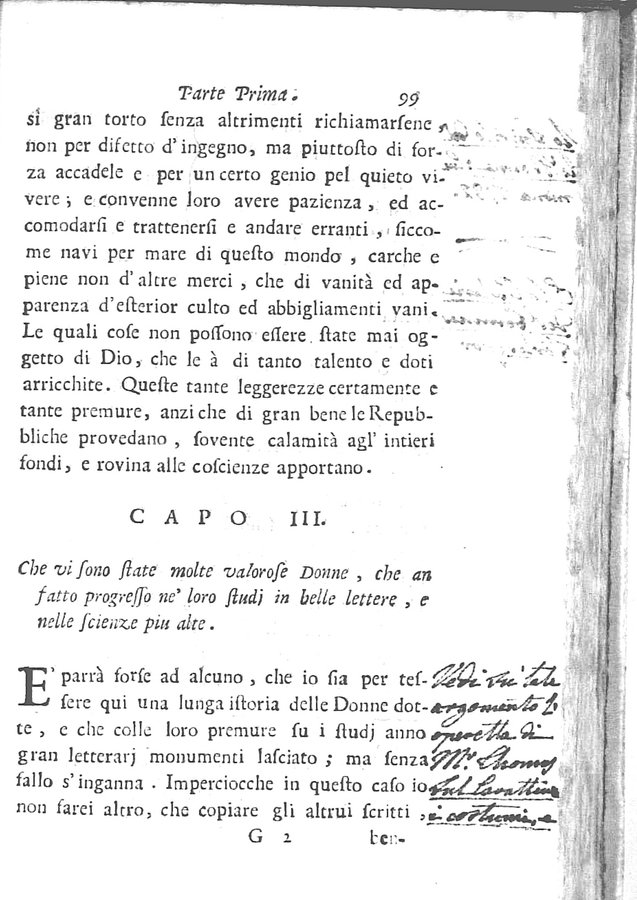 Parte Prima. 99
sì gran torto ſenza altrimenti richiamarſene,
non per difetto d'ingegno, ma piuttoſto di for-
za accadele e per un certo genio pel quieto vi-
vere; e convenne loro avere pazienza, ed ac-
comodarſi e trattenerſi e andare erranti, ſicco-
me navi per mare di queſto mondo, carche e
piene non d'altre merci, che di vanità ed ap-
parenza d'eſterior culto ed abbigliamenti vani.
Le quali coſe non poſſono eſſere ſtate mai og-
getto di Dio, che le à di tanto talento e doti
arricchite. Queſte tante leggerezze certamente e
tante premure, anzi che di gran bene le Repub-
bliche provedano, ſovente calamità agl' intieri
fondi, e rovina alle coſcienze apportano.
CAPO III.
Che vi ſono ſtate molte valoroſe Donne, che an
fatto progreſſo ne' loro ſtudj in belle lettere, e
nelle ſcienze piu alte.
E' parrà forſe ad alcuno, che io ſia per teſ-
ſere qui una lunga iſtoria delle Donne dot-
te, e che colle loro premure ſu i ſtudj anno
gran letterarj monumenti laſciato; ma ſenza
fallo s'inganna. Imperciocche in queſto caſo io
non farei altro, che copiare gli altrui ſcritti,
G 2 ben-
Vedi su tale
argomento
operetta di
Mr. Thomas
sul Carattere
i costumi, e